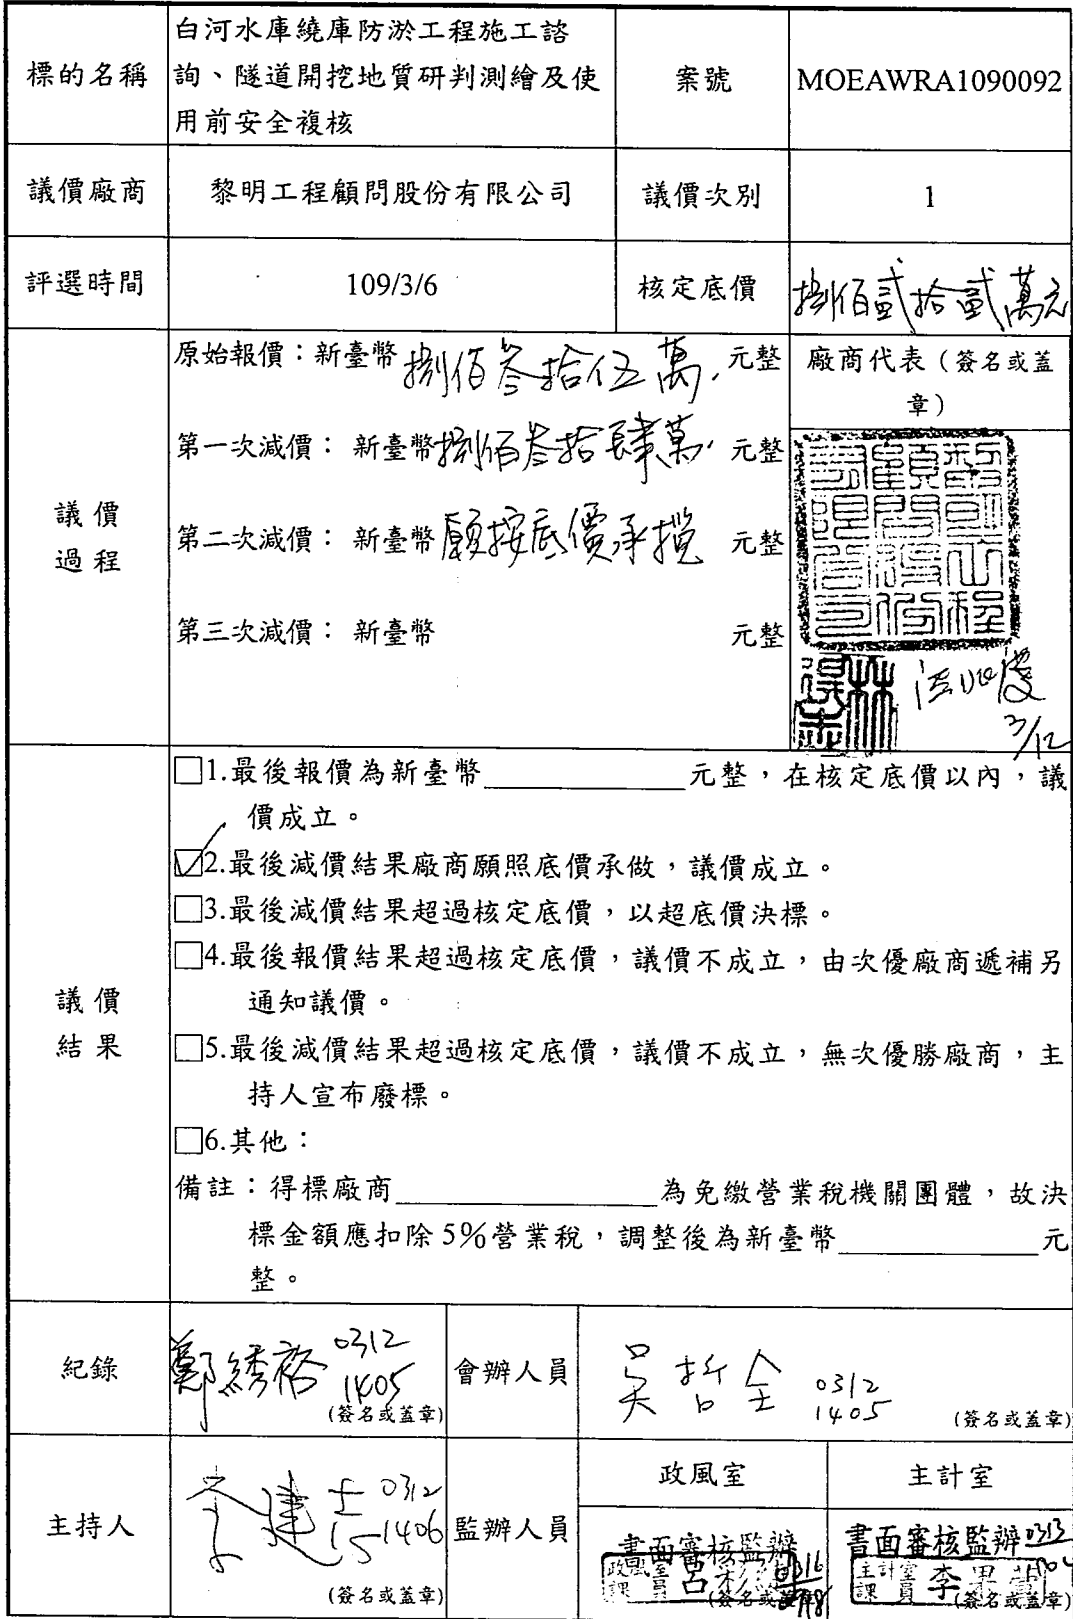 標的名稱
白河水庫繞庫防淤工程施工諮
詢、隧道開挖地質研判測繪及使
用前安全複核
案號
MOEAWRA1090092
議價廠商
黎明工程顧問股份有限公司
議價次別
1
評選時間
109/3/6
核定底價
捌佰貳拾貳萬元
議價
過程
原始報價：新臺幣捌佰叁拾伍萬元整
第一次減價： 新臺幣捌佰叁拾肆萬元整
第二次減價： 新臺幣願按底價承攬元整
第三次減價： 新臺幣 元整
廠商代表（簽名或蓋
章）
黎明工程
顧問股份
有限公司
林
3/12
議價
結果
□1.最後報價為新臺幣____________元整，在核定底價以內，議
價成立。
☑2.最後減價結果廠商願照底價承做，議價成立。
□3.最後減價結果超過核定底價，以超底價決標。
□4.最後報價結果超過核定底價，議價不成立，由次優廠商遞補另
通知議價。
□5.最後減價結果超過核定底價，議價不成立，無次優勝廠商，主
持人宣布廢標。
□6.其他：
備註：得標廠商________________為免繳營業稅機關團體，故決
標金額應扣除5%營業稅，調整後為新臺幣____________元
整。
紀錄
鄭綉裕 0312
1405
(簽名或蓋章)
會辦人員
吳哲全 0312
1405
(簽名或蓋章)
主持人
李建 0312
1406
(簽名或蓋章)
監辦人員
政風室
書面審核監辦
政風室
課員 呂 0316
(簽名或蓋章)
主計室
書面審核監辦 0313
主計室
課員 李
(簽名或蓋章)